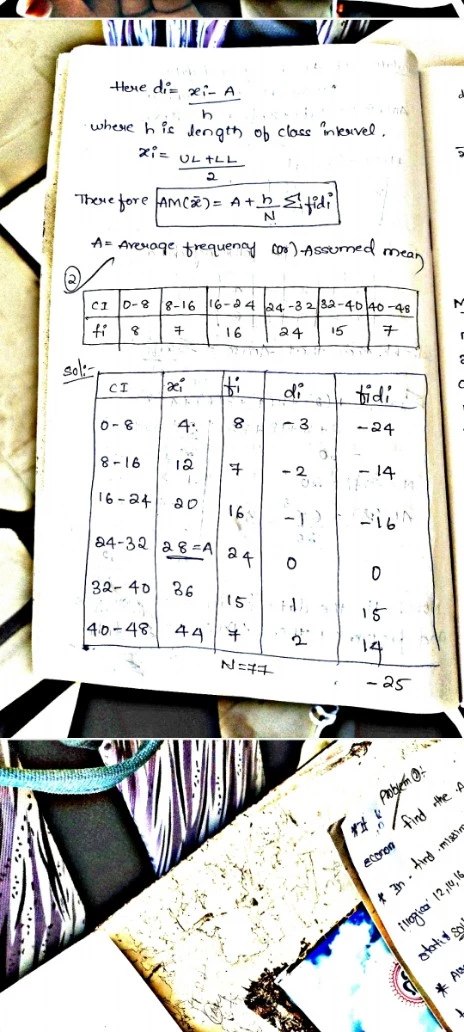 Here di = xi - A
h
where h is length of class interval.
xi = UL + LL
2
Therefore AM(x̄) = A + h/N Σ fidi
A = Average frequency (or) Assumed mean
②
CI 0-8 8-16 16-24 24-32 32-40 40-48
fi 8 7 16 24 15 7
sol:-
CI xi fi di fidi
0-8 4 8 -3 -24
8-16 12 7 -2 -14
16-24 20 16 -1 -16
24-32 28=A 24 0 0
32-40 36 15 1 15
40-48 44 7 2 14
N=77
-25
Problem
find the
econom
* In find missin
12,14,16